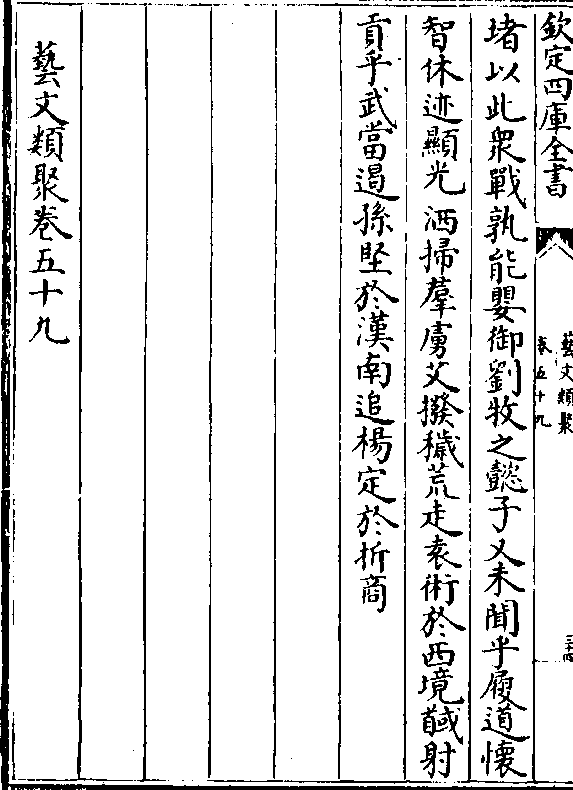 欽定四庫全書
藝文類聚
卷五十九
三十四
堵以此衆戰孰能嬰御劉牧之懿子又未聞乎履道懷
智休迹顯光洒掃羣虜艾撥穢荒走袁術於西境馘射
貢乎武當遏孫堅於漢南追楊定於折商
藝文類聚卷五十九